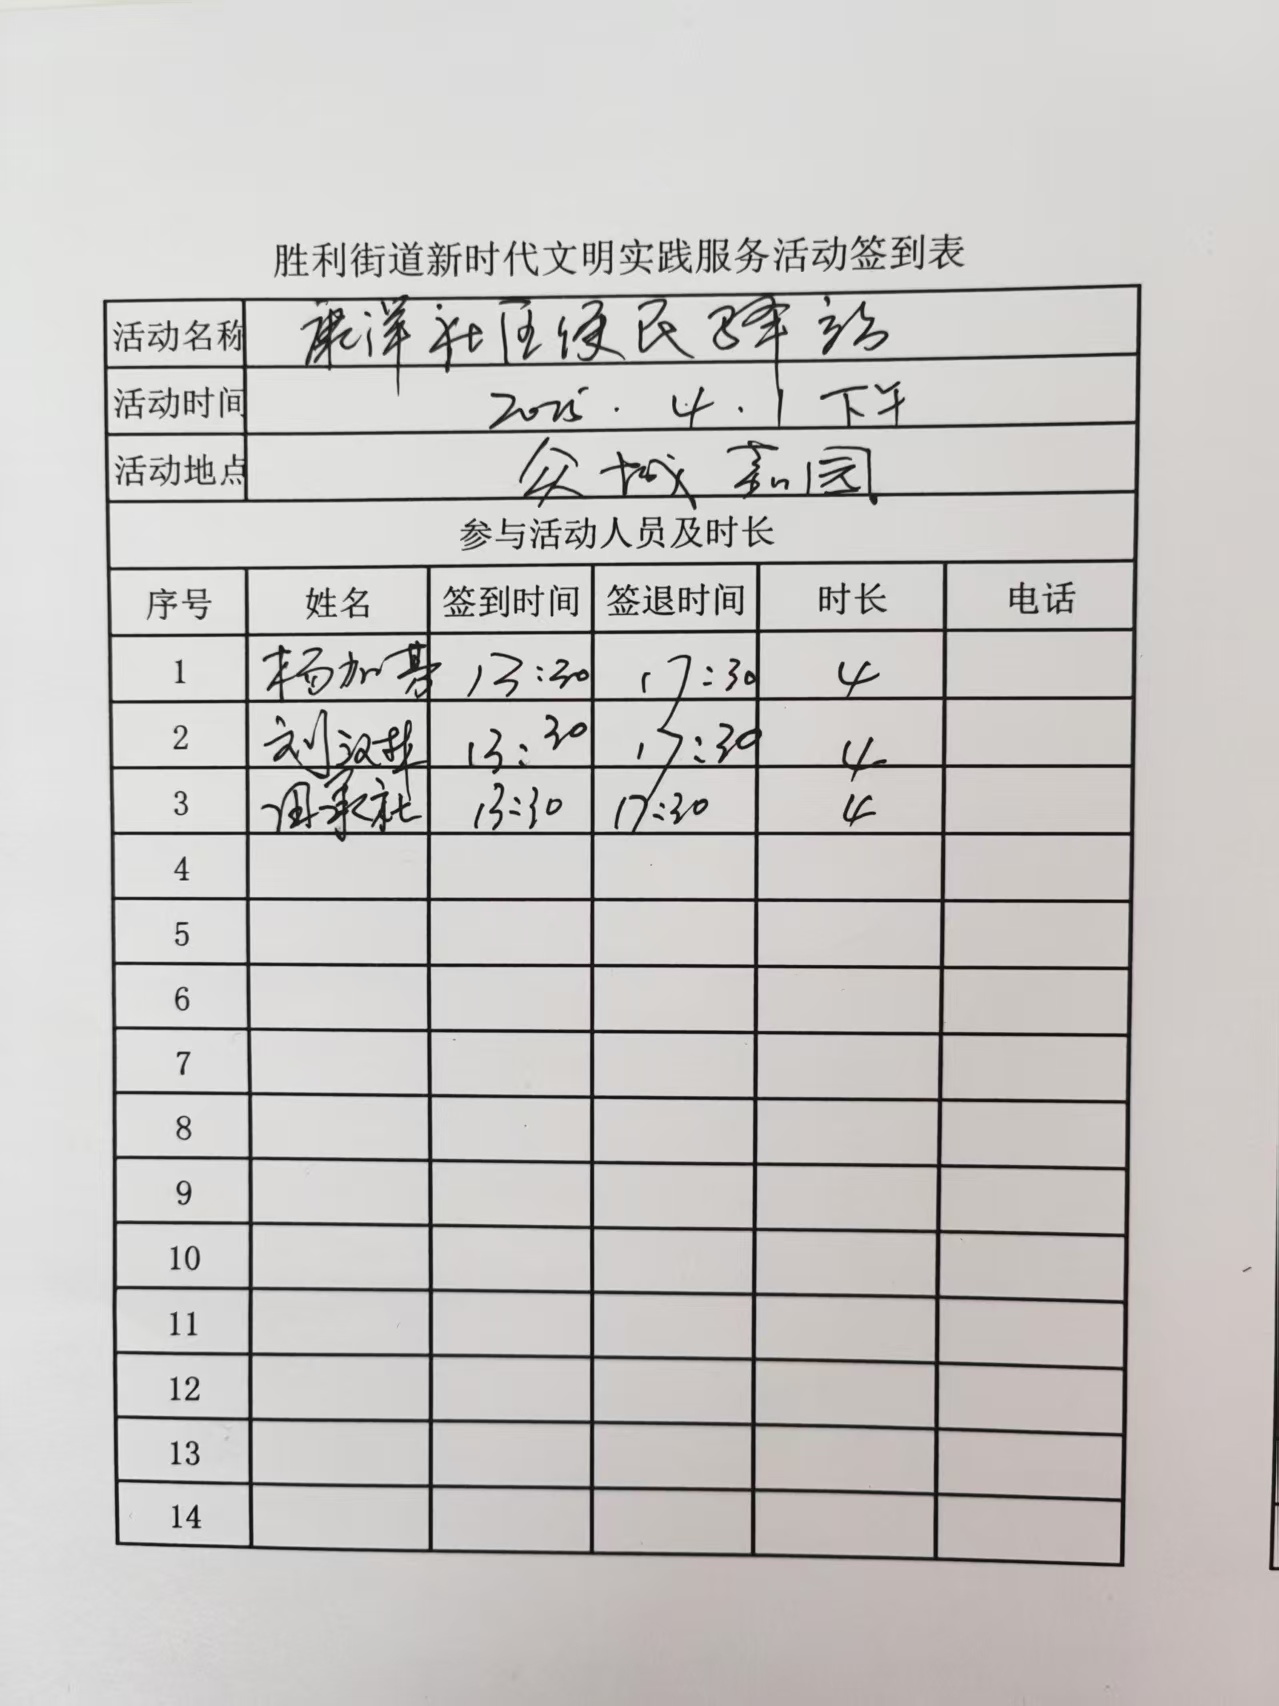 胜利街道新时代文明实践服务活动签到表
活动名称 康洋社区便民驿站
活动时间 2025.4.1 下午
活动地点 众城嘉园
参与活动人员及时长
序号 姓名 签到时间 签退时间 时长 电话
1 杨加 13:30 17:30 4
2 刘汉林 13:30 17:30 4
3 周承社 13:30 17:30 4
4
5
6
7
8
9
10
11
12
13
14